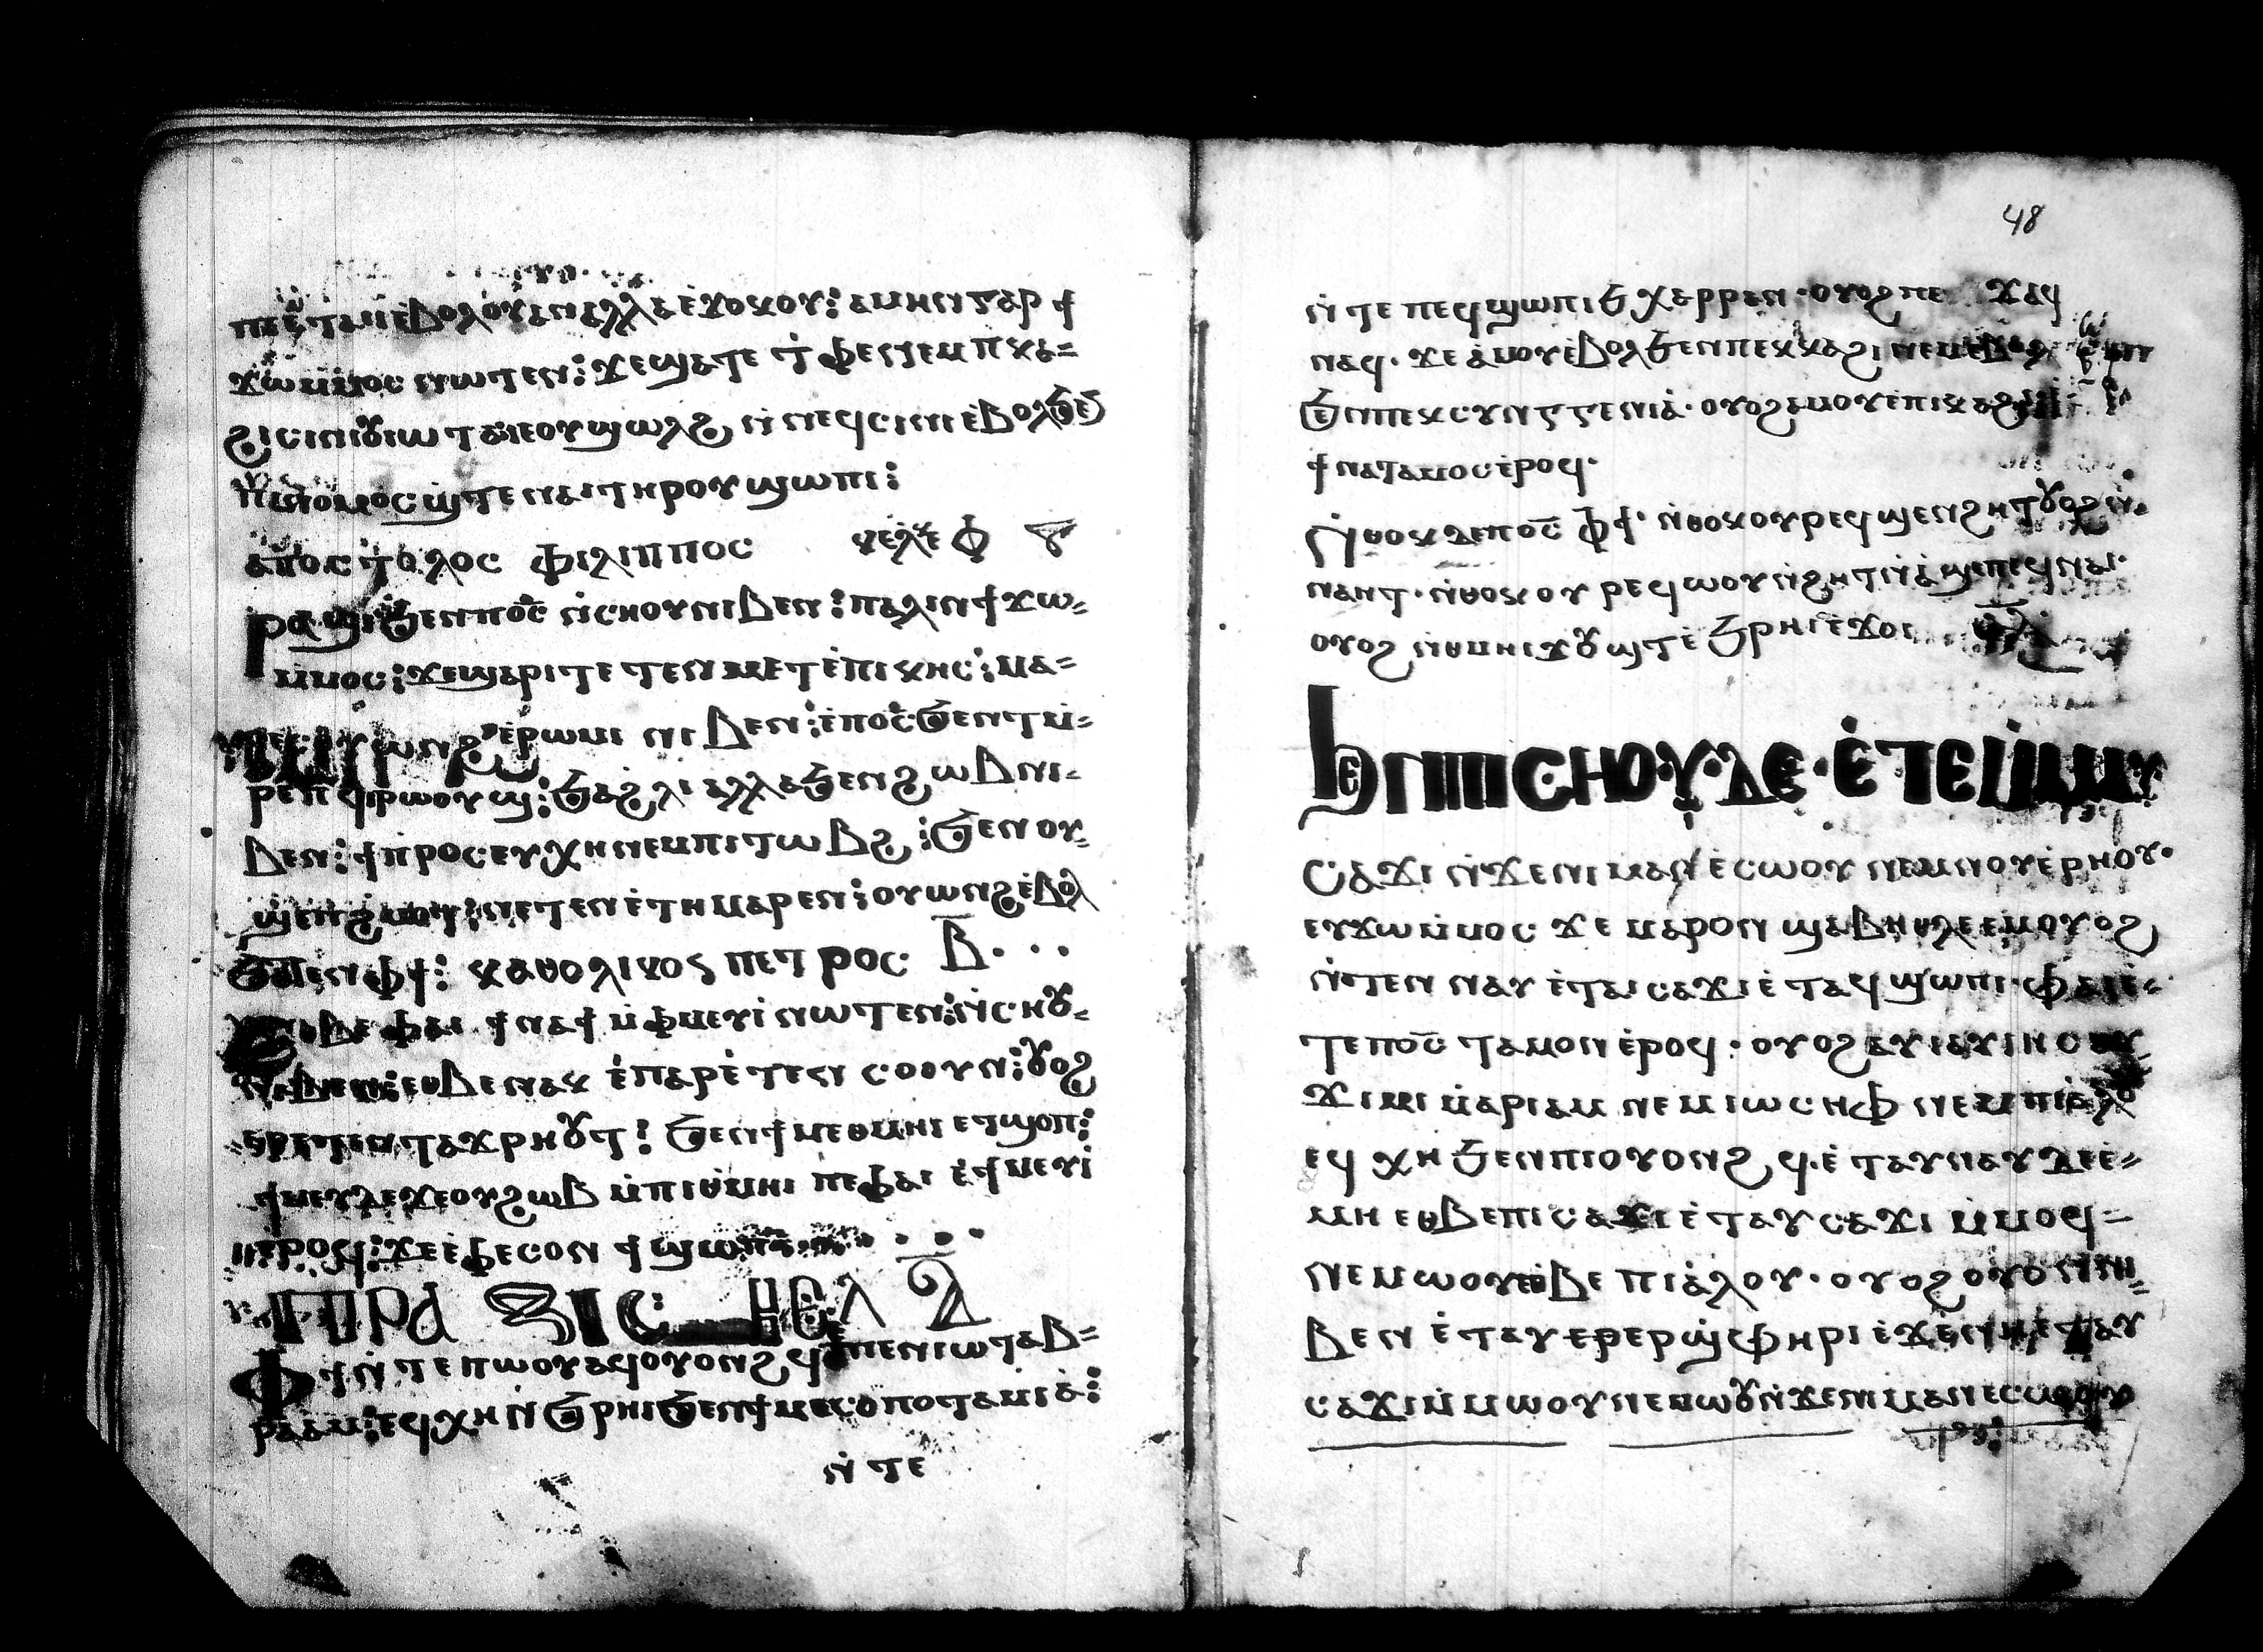 ⲡⲉⲉⲧⲁⲓⲓⲉ̀ⲃⲟⲗⲟⲩⲁⲛⲁⲗⲗⲁⲉ̀ϫⲟⲕⲟⲩ: ⲁⲙⲏⲛⲅⲁⲣ ϯ
ϫⲱⲙ̀ⲙⲟⲥ ⲛⲱⲧⲉⲛ: ϫⲉϣⲁⲧⲉ ⲧ̀ⲫⲉⲛⲉⲙ ⲡⲕⲁ=
ϩⲓⲥⲓⲛⲓⲟⲩⲓⲱⲧⲁⲓⲉⲟⲩϣⲱⲗϩ ⲛ̀ⲛⲉϥⲥⲓⲛⲓ ⲉ̀ⲃⲟⲗϧⲉⲛ
ⲡⲓⲛⲟⲙⲟⲥϣ̀ⲧⲉ ⲛⲁⲓⲧⲏⲣⲟⲩ ϣⲱⲡⲓ:
ⲁⲡⲟⲥⲧⲟⲗⲟⲥ ⲫⲓⲗⲓⲡⲡⲟⲥ
ⲣⲁϣⲓϧⲉⲛⲡⲟ̅ⲥ̅ ⲛ̀ⲥⲛⲟⲩⲛⲓⲃⲉⲛ: ⲡⲁⲗⲓⲛϯϫⲱ=
ⲙ̀ⲙⲟⲥ: ϫⲉϣⲁⲣⲓⲧⲉ ⲧⲉⲛⲙⲉⲧⲉ̀ⲡⲓⲕⲏⲥ: ⲙⲁ=
ⲟⲩⲱⲛϩ ⲉ̀ⲣⲱⲙⲓ ⲛⲓⲃⲉⲛ: ⲉ̀ⲡⲟ̅ⲥ̅ ϧⲉⲛⲧⲙ̀=
ⲣⲉⲡϥⲓⲣⲱⲟⲩϣ: ϧⲁϩⲗⲓ ⲁⲗⲗⲁϧⲉⲛϩⲱⲃⲛⲓ=
ⲃⲉⲛ: ϯⲡⲣⲟⲥⲉⲩⲭⲏⲛⲉⲙⲡⲓⲧⲱⲃϩ: ϧⲉⲛⲟⲩ=
ϣⲉⲡϩ̀ⲙⲟⲧ: ⲛⲉⲧⲉⲛⲉ̀ⲧⲏⲙⲁⲣⲉⲛ: ⲟⲩⲱⲛϩⲉ̀ⲃⲟⲗ
ϧⲁⲧⲉⲛⲫϯ: ⲕⲁⲑⲟⲗⲓⲕⲟⲥ ⲡⲉⲧⲣⲟⲥ ⲃ̅
ⲉⲑⲃⲉⲫⲁⲓ ϯⲛⲁϯⲙ̀ⲫⲙⲉⲩⲓ̀ ⲛⲱⲧⲉⲛ: ⲛ̀ⲥⲛⲟⲩ=
ⲛⲓⲃⲉⲛ: ⲉⲑⲃⲉⲛⲁⲕ ⲉ̀ⲡⲁⲣⲉ̀ⲧⲉⲛ ⲥⲟⲟⲩⲛ: ⲟⲩⲟϩ
ⲉⲣⲉⲧⲉⲛⲧⲁϫⲣⲏⲟⲩⲧ: ϧⲉⲛϯⲙⲉⲑⲙⲏⲓ ⲉⲧϣⲟⲡ:
ϯⲙⲉⲩⲓⲇⲉϫⲉⲟⲩϩⲱⲃ ⲙ̀ⲡⲓⲑⲙⲏⲓ ⲡⲉⲫⲁⲓ ⲉ̀ϯⲙⲉⲩⲓ̀
ⲉ̀ⲣⲟϥ: ϫⲉⲉ̀ⲫⲉⲥⲟⲛ ϯϣⲱⲡⲓ
ⲡⲣⲁⲝⲓⲥ
ⲫϯⲛ̀ⲧⲉⲡⲱⲟⲩⲁϥⲟⲩⲟⲛϩϥⲉ̀ⲡⲉⲛⲓⲱⲧⲁⲃ=
ⲣⲁⲁⲙ: ⲉϥⲭⲏⲛ̀ϧⲣⲏⲓϧⲉⲛϯⲙⲉⲥⲟⲡⲟⲧⲁⲙⲓⲁ̀:
ⲛ̀ⲧⲉ
48
ⲛ̀ⲧⲉ ⲡⲉϥϣⲱⲡⲓϧⲭⲁⲣⲣⲁⲛ· ⲟⲩⲟϩⲡⲉϫⲁϥ
ⲛⲁϥ· ϫⲉ ⲁ̀ⲙⲟⲩⲉ̀ⲃⲟⲗϧⲉⲛⲡⲉⲕⲕⲁϩⲓⲛⲉⲙⲉ̀ⲃⲟⲗ
ϧⲉⲛⲡⲉⲕⲥⲩⲛⲅⲅⲉⲛⲓⲁ̀· ⲟⲩⲟϩⲁⲙⲟⲩⲉ̀ⲡⲓⲕⲁϩⲓ
ϯⲛⲁⲧⲁⲙⲟⲥⲉ̀ⲣⲟϥ·
ⲛ̀ⲑⲟⲕⲇⲉⲡⲟ̅ⲥ̅ ⲫϯ· ⲛ̀ⲑⲟⲕⲟⲩⲣⲉϥϣⲉⲛϩⲏⲧⲟⲩⲟϩⲛ̀
ⲛⲁⲏⲧ· ⲛ̀ⲑⲟⲕⲟⲩ ⲣⲉϥⲱⲟⲩⲛ̀ϩⲏⲧⲛⲁ̀ϣⲉⲡⲉϥⲛⲁⲓ·
ⲟⲩⲟϩ ⲛ̀ⲑⲙⲏⲓϫⲟⲩϣⲧ ⲉ̀ϧⲣⲏⲓⲉϫⲱⲓ
ϧⲉⲛⲡⲓⲥⲏⲟⲩ·ⲇⲉ·ⲉ̀ⲧⲉⲙ̀ⲙⲁⲩ
ⲥⲁϫⲓ ⲛ̀ϫⲉⲛⲓⲙⲁⲛⲉ̀ⲥⲱⲟⲩ ⲛⲉⲙⲛⲟⲩⲉ̀ⲣⲏⲟⲩ·
ⲉⲩϫⲱⲙ̀ⲙⲟⲥ ϫⲉ ⲙⲁⲣⲟⲛ ϣⲁⲃⲏⲑⲗⲉⲉⲙⲟⲩⲟϩ
ⲛ̀ⲧⲉⲛ ⲛⲁⲩ ⲉ̀ⲧⲁⲓⲥⲁϫⲓⲉ̀ⲧⲁϥϣⲱⲡⲓ· ⲫⲁⲓⲉ̀=
ⲧⲉⲡⲟ̅ⲥ̅ ⲧⲁⲙⲟⲛ ⲉ̀ⲣⲟϥ· ⲟⲩⲟϩⲁⲩⲓⲁⲩⲓⲏⲥ
ϫⲓⲙⲓ ⲙ̀ⲁⲣⲓⲁⲙ ⲛⲉⲙⲓⲱⲥⲏⲫ ⲛⲉⲙⲡⲓⲁ̀ⲗⲟ
ⲉϥ ⲭⲏ ϧⲉⲛⲡⲓⲟⲩⲟⲛϩϥ·ⲉ̀ⲧⲁⲩⲛⲁⲩⲇⲉⲉ̀=
ⲙⲏ ⲉⲑⲃⲉⲡⲓⲥⲁϫⲓⲉ̀ⲧⲁⲩⲥⲁϫⲓ ⲙ̀ⲙⲟϥ=
ⲛⲉⲙⲱⲟⲩⲉⲑⲃⲉ ⲡⲓⲁ̀ⲗⲟⲩ· ⲟⲩⲟϩ ⲟⲩⲟⲛⲛⲓ=
ⲃⲉⲛ ⲉ̀ⲧⲁⲩ ⲉⲣⲉⲣϣ̀ⲫⲏⲣⲓ ⲉ̀ϫⲉⲛⲛⲏⲉ̀ⲧⲁⲩ
ⲥⲁϫⲓⲙ̀ⲙⲱⲟⲩⲛⲉⲙⲱⲟⲩⲛ̀ϫⲉⲛⲓⲙⲁⲛⲉⲥⲱⲟⲩ